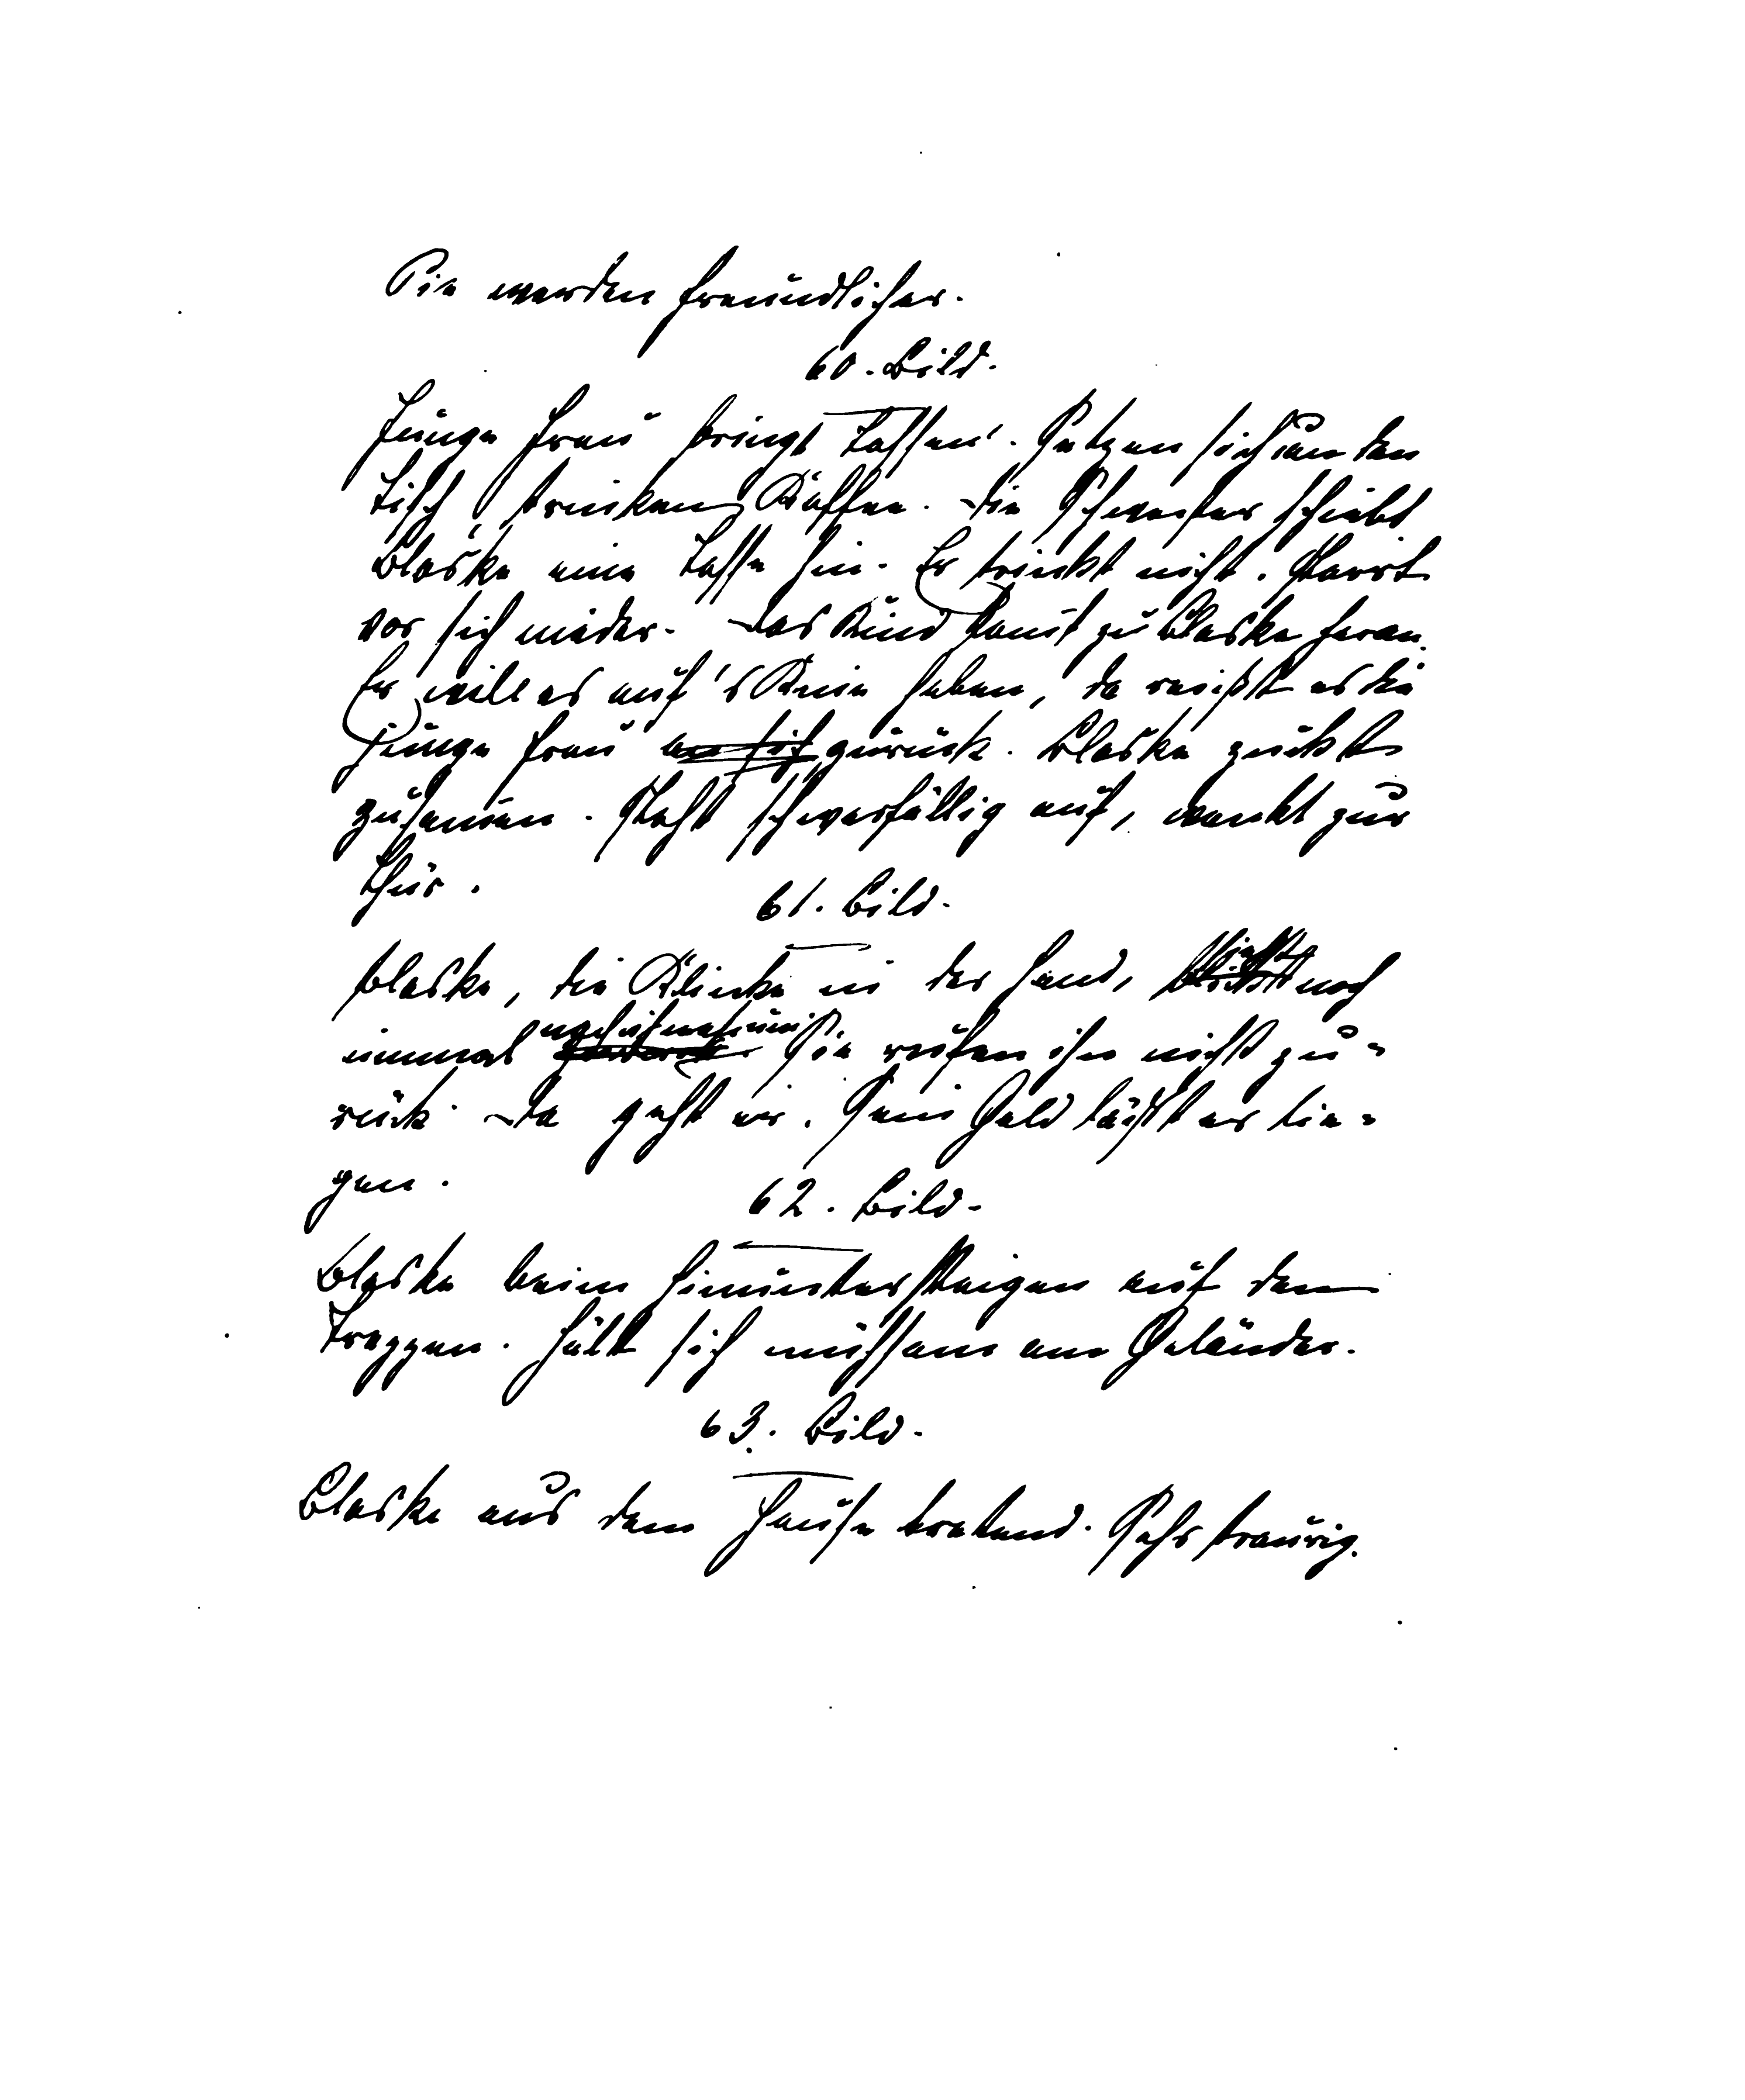 Sie werden freundlicher.
60. Bild.
Junge Frau bringt Tassen. Setzen sich an den
Tisch, trinken Kaffee. Die Schwester schiebt
Blaske eine Tasse hin. Er trinkt nicht. Starrt
vor sich nieder. Das Kind kom̅t zu Blaske heran.
Er will es auf's Knie heben, da reißt es die
junge Frau an sich zurück. Blaske zuckt
zusam̅en. Steht schwerfällig auf, wankt zur
Thür.
61. Bild.
Blaske, die Klinke in der Hand, noch
einmal
nach ihnen um. Sie rufen ihn nicht zu=
rück. Da geht er. Sein Geld läßt er lie=
gen.
62. Bild.
Blaske beim Hinuntersteigen auf den
Treppen. Hält sich mühsam am Geländer.
63. Bild.
Blaske aus dem Hause tretend. Sehr traurig.